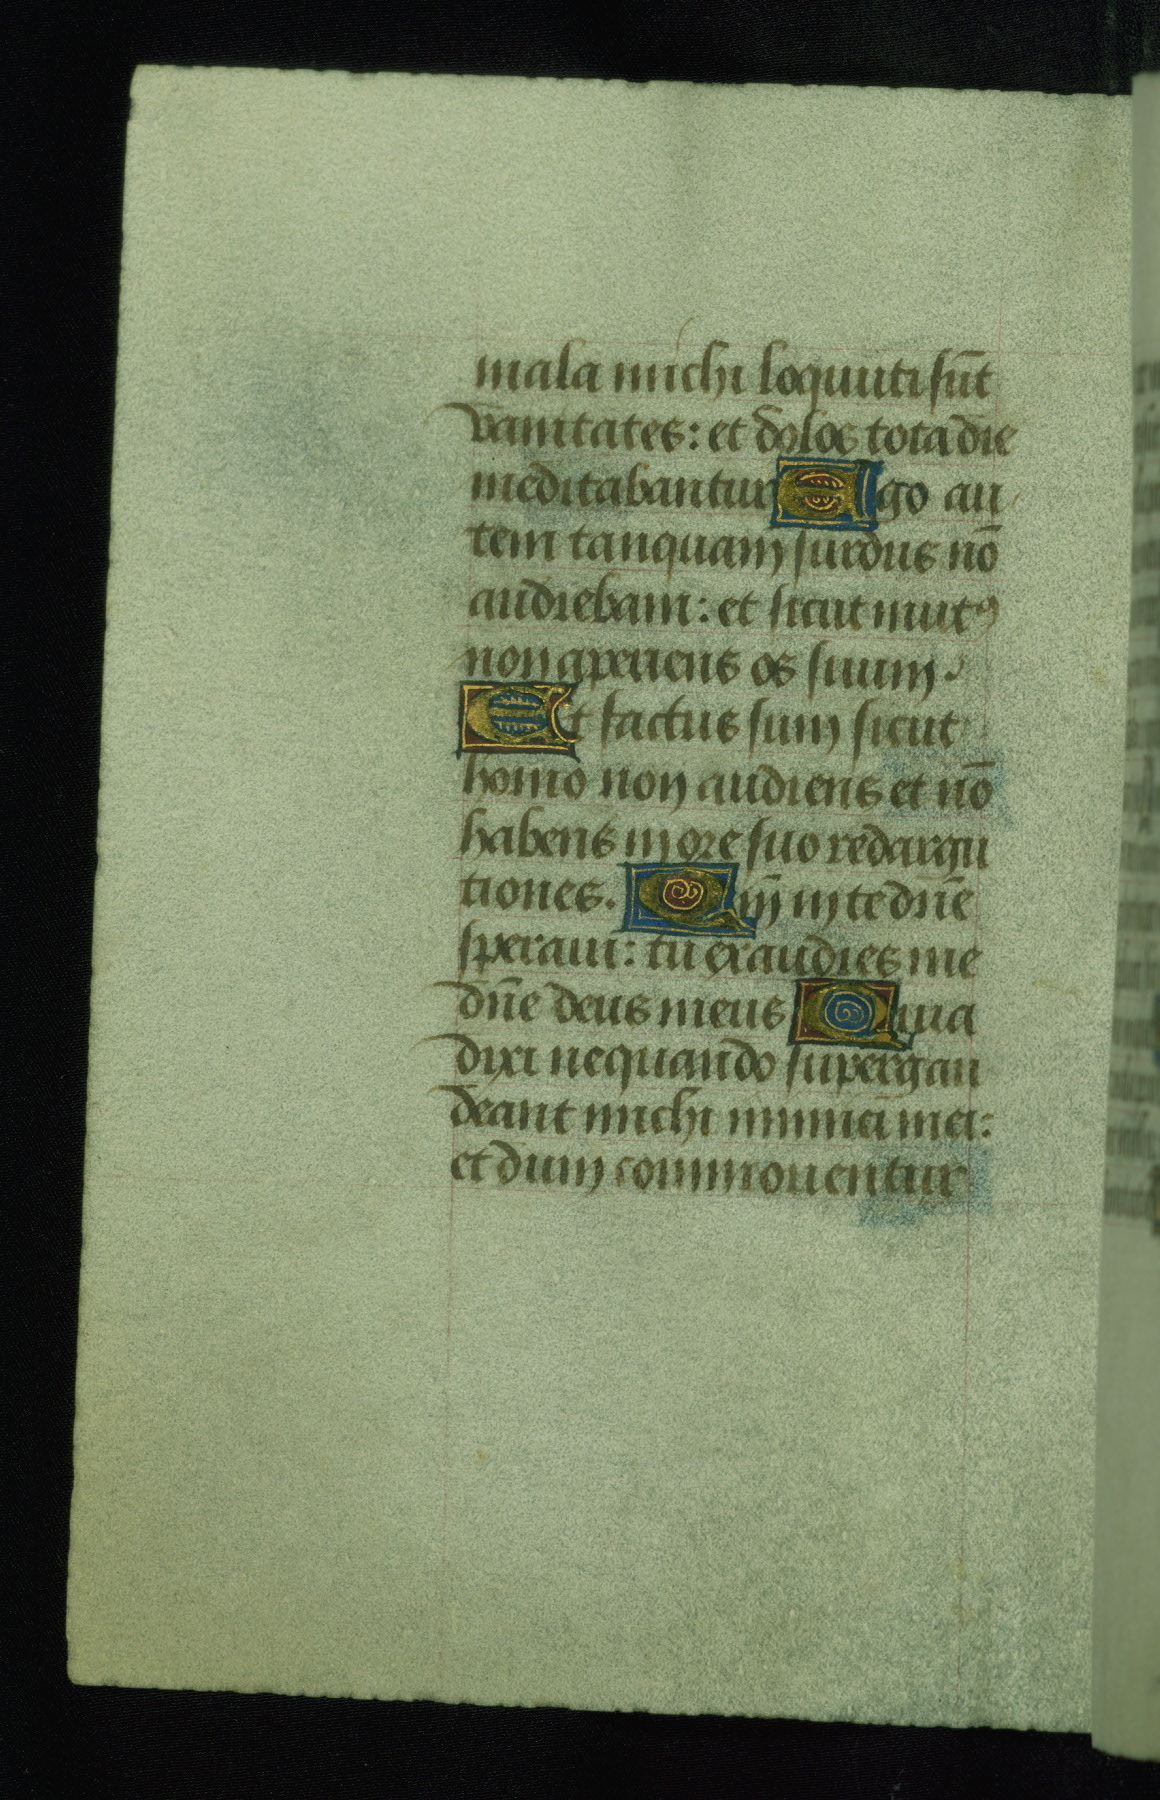 mala michi loquuti sūt
vanitates: et dolos tota die
meditabantur Ego au
tem tanquam surdus nō
audiebam: et sicut mutꝰ
non aperiens os suum.
Et factus sum sicut
homo non audiens et nō
habens in ore suo redargu
tiones. Qm̄ in te dn̄e
speraui: tu exaudies me
dn̄e deus meus Quia
dixi nequando supergau
deant michi inimici mei:
et dum commouentur